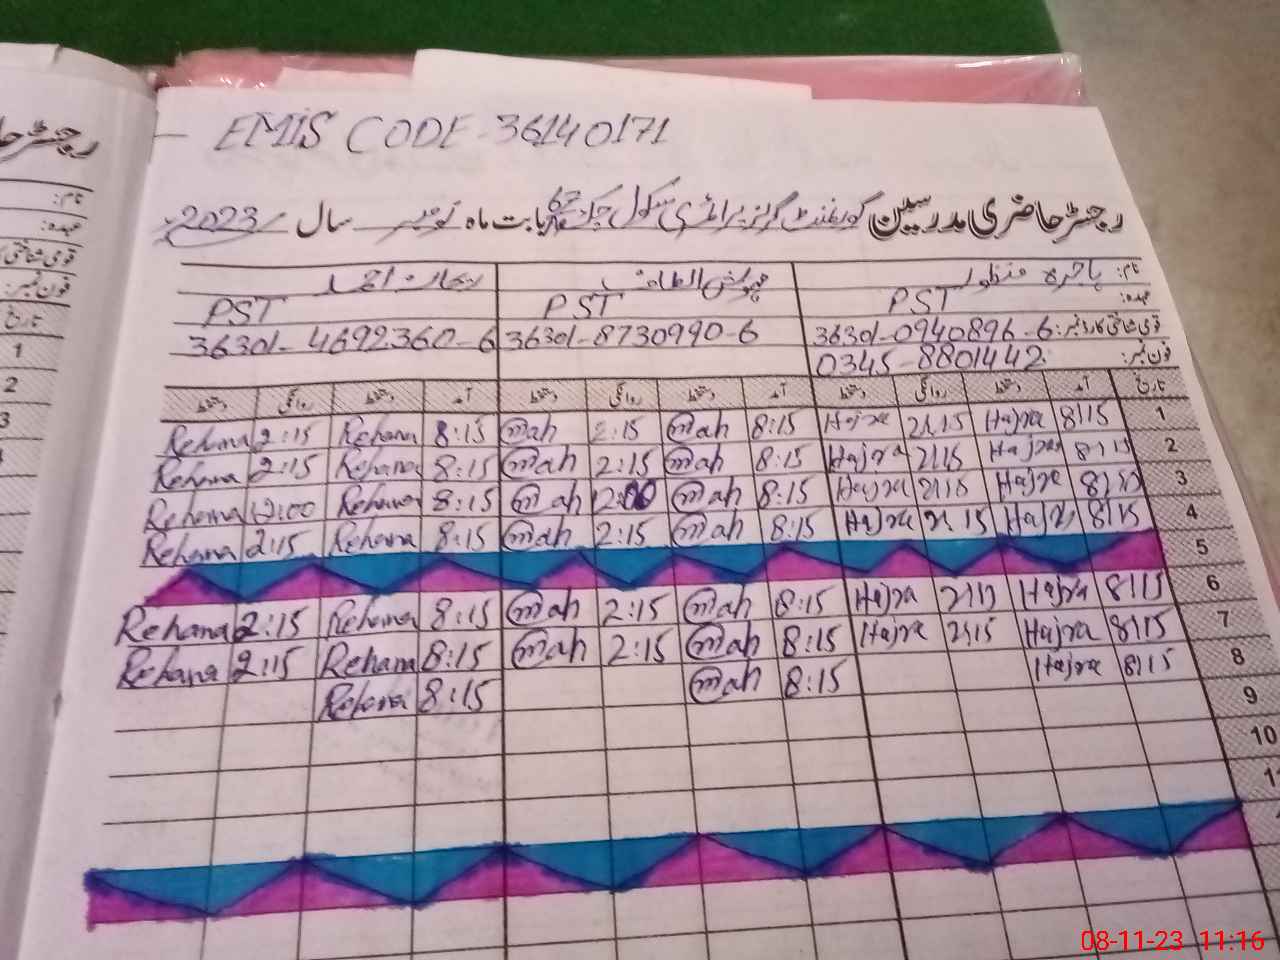 EMIS CODE-36140171
رجسٹر حاضری مدرسین گورنمنٹ گرلز پرائمری سکول چک 67 بابت ماہ نومبر سال 2023
نام: ہاجرہ منظور
عہدہ: PST PST PST
قومی شناختی کارڈ نمبر: 36301-0940896-6 36301-8730990-6 36301-4692360-6
فون نمبر: 0345-8801442
تاریخ آمد دستخط روانگی دستخط آمد دستخط روانگی دستخط آمد دستخط روانگی دستخط
Rehana 2:15 Rehana 8:15 mah 2:15 mah 8:15 Hajra 2:15 Hajra 8:15 1
Rehana 2:15 Rehana 8:15 mah 2:15 mah 8:15 Hajra 2:15 Hajra 8:15 2
Rehana 12:00 Rehana 8:15 mah 12:00 mah 8:15 Hajra Hajra 3
Rehana 2:15 Rehana 8:15 mah 2:15 mah 8:15 Hajra 2:15 Hajra 8:15 4
5
Rehana 2:15 Rehana 8:15 mah 2:15 mah 8:15 Hajra Hajra 8:15 6
Rehana 2:15 Rehana 8:15 mah 2:15 mah 8:15 Hajra 2:15 Hajra 8:15 7
Rehana 8:15 mah 8:15 Hajra 8:15 8
9
10
نام:
عہدہ:
فون نمبر:
تاریخ
1
2
3
08-11-23 11:16